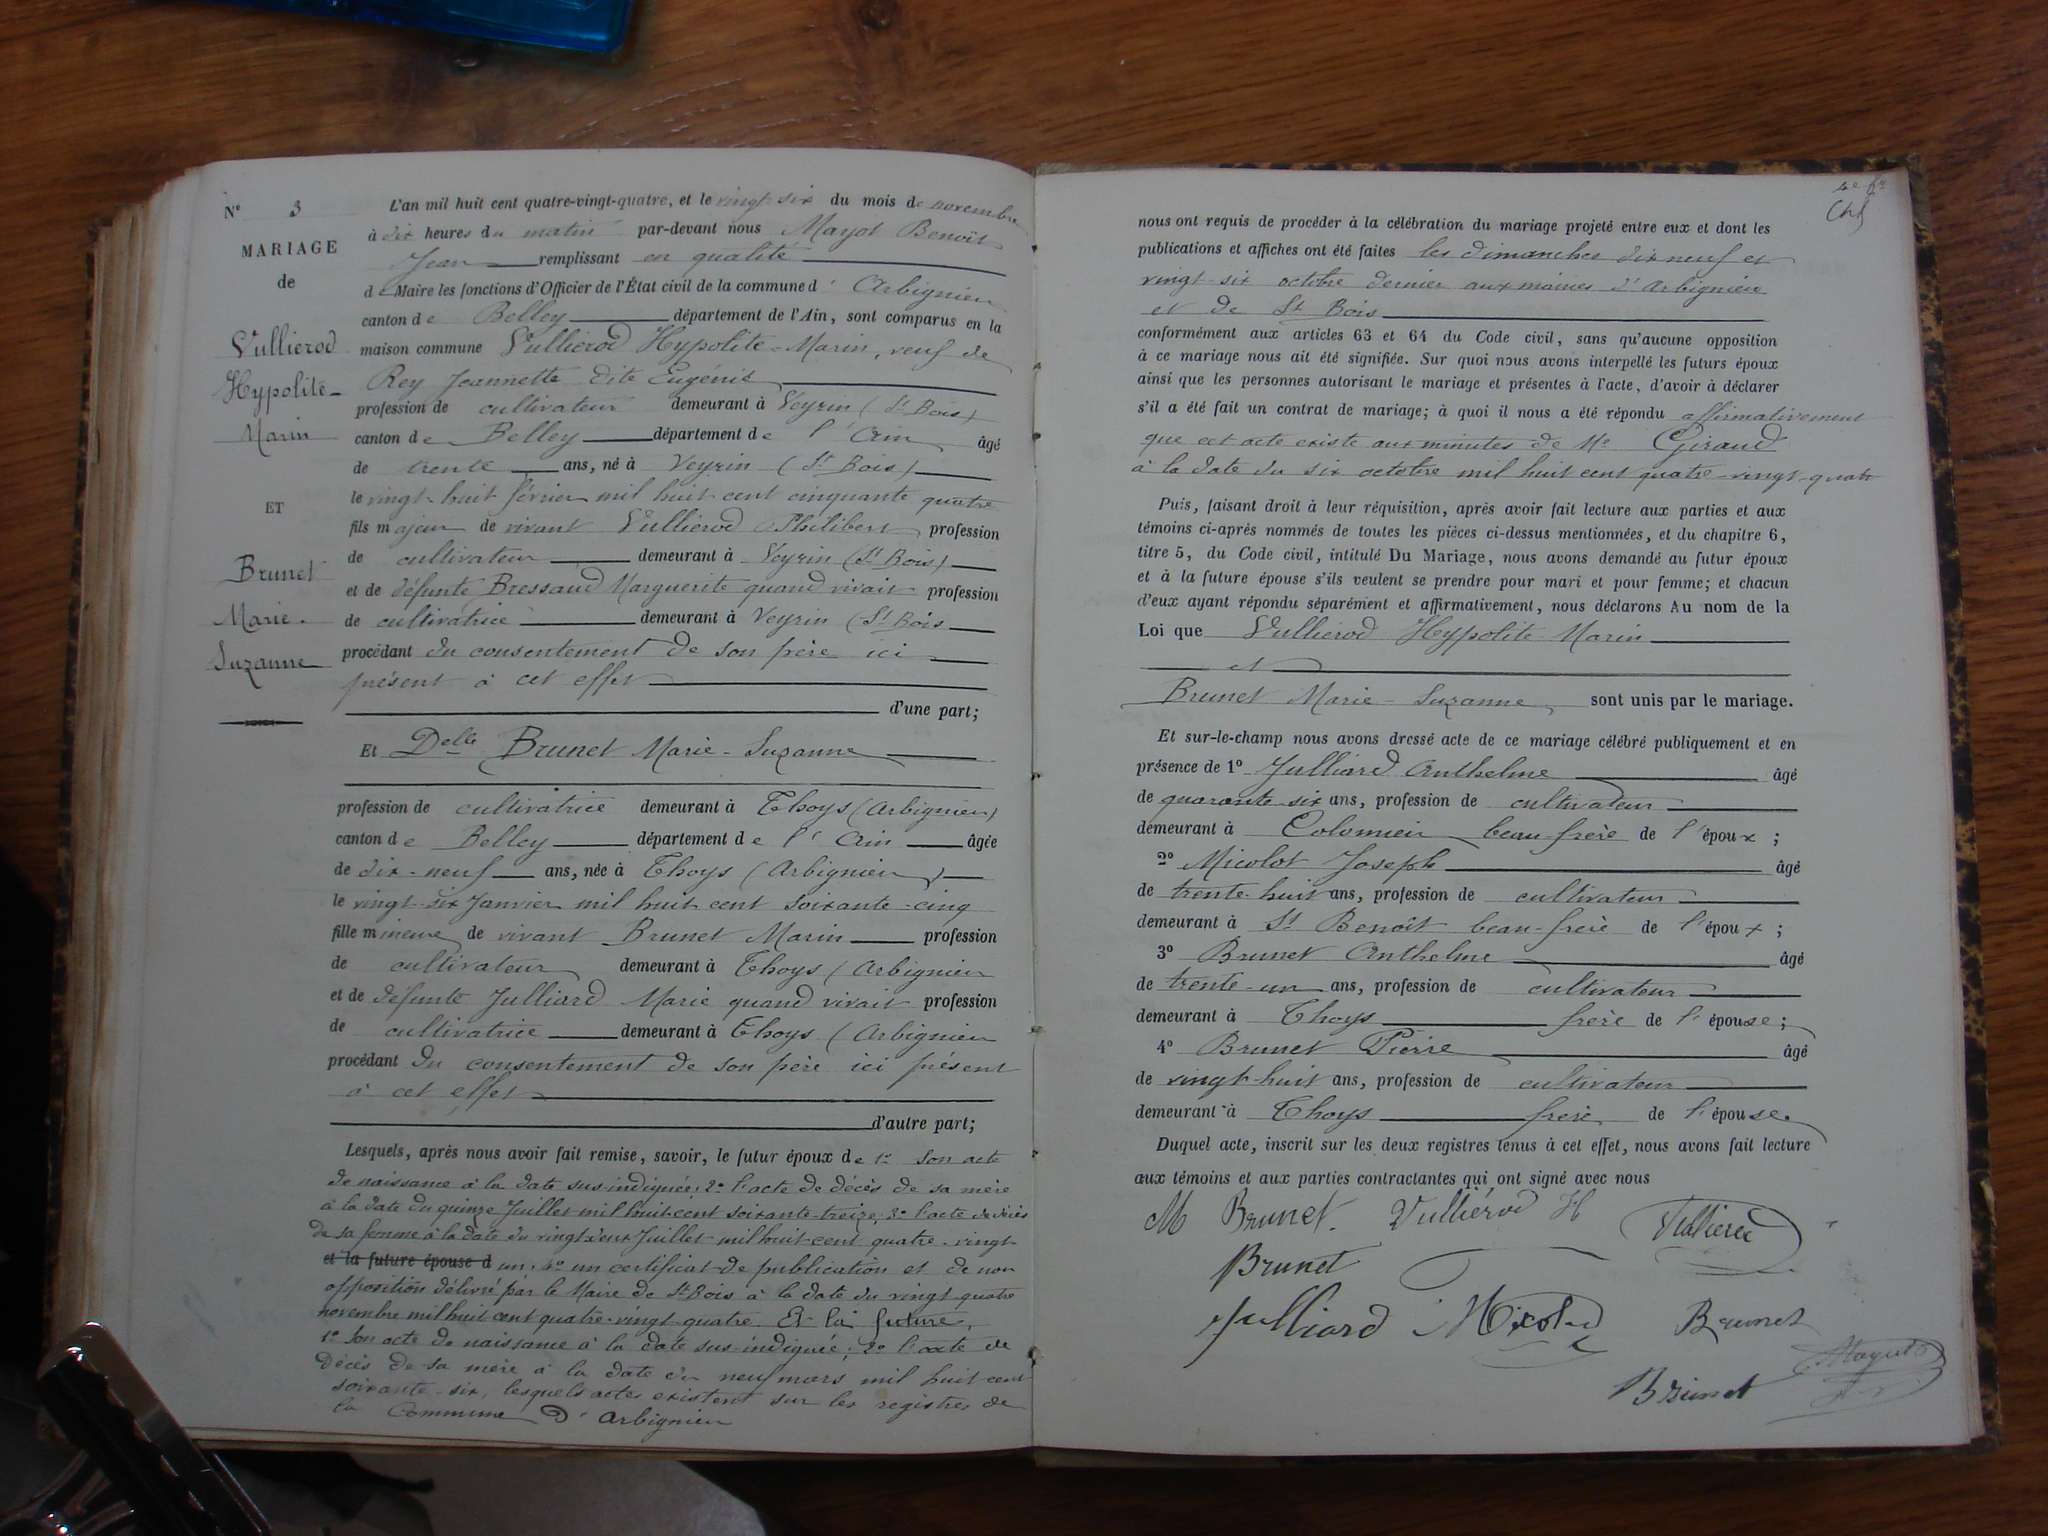 N° 3
MARIAGE
de
Vullierod
Hypolite-
Marin
ET
Brunet
Marie-
Suzanne
L'an mil huit cent quatre-vingt-quatre, et le vingt-six du mois de novembre
à dix heures du matin par-devant nous Mayot Benoît
Jean remplissant en qualité
de Maire les fonctions d'Officier de l'État civil de la commune d'Arbignieu
canton de Belley département de l'Ain, sont comparus en la
maison commune Vullierod Hypolite-Marin, veuf de
Rey Jeannette dite Eugénie
profession de cultivateur demeurant à Veyrin (St Bois)
canton de Belley département de l'Ain âgé
de trente ans, né à Veyrin (St Bois)
le vingt-huit février mil huit cent cinquante quatre
fils majeur de vivant Vullierod Philibert profession
de cultivateur demeurant à Veyrin (St Bois)
et de défunte Bressaud Marguerite quand vivait profession
de cultivatrice demeurant à Veyrin (St Bois
procédant du consentement de son père ici
présent à cet effet
d'une part;
Et Delle Brunet Marie-Suzanne
profession de cultivatrice demeurant à Thoys (Arbignieu)
canton de Belley département de l'Ain âgée
de dix-neuf ans, née à Thoys (Arbignieu)
le vingt-six Janvier mil huit cent soixante-cinq
fille mineure de vivant Brunet Marin profession
de cultivateur demeurant à Thoys (Arbignieu
et de défunte Julliard Marie quand vivait profession
de cultivatrice demeurant à Thoys (Arbignieu
procédant du consentement de son père ici présent
à cet effet
d'autre part;
Lesquels, après nous avoir fait remise, savoir, le futur époux de 1° Son acte
de naissance à la date sus-indiquée; 2° l'acte de décès de sa mère
à la date du quinze Juillet mil huit cent soixante-treize; 3° l'acte de décès
de sa femme à la date du vingt deux Juillet mil huit cent quatre-vingt-
et la future épouse d un; 4° un certificat de publication et de non
opposition délivré par le Maire de St Bois à la date du vingt-quatre
novembre mil huit cent quatre-vingt-quatre. Et la future,
1° Son acte de naissance à la date sus-indiquée; 2° l'acte de
décès de sa mère à la date du neuf mars mil huit cent
soixante-six, lesquels actes existent sur les registres de
la Commune d'Arbignieu
nous ont requis de procéder à la célébration du mariage projeté entre eux et dont les
publications et affiches ont été faites les dimanches dix neuf et
vingt-six octobre dernier aux mairies d'Arbignieu
et de St Bois
conformément aux articles 63 et 64 du Code civil, sans qu'aucune opposition
à ce mariage nous ait été signifiée. Sur quoi nous avons interpellé les futurs époux
ainsi que les personnes autorisant le mariage et présentes à l'acte, d'avoir à déclarer
s'il a été fait un contrat de mariage; à quoi il nous a été répondu affirmativement
que cet acte existe aux minutes de Me Giraud
à la date du six octobre mil huit cent quatre-vingt-quatre
Puis, faisant droit à leur réquisition, après avoir fait lecture aux parties et aux
témoins ci-après nommés de toutes les pièces ci-dessus mentionnées, et du chapitre 6,
titre 5, du Code civil, intitulé Du Mariage, nous avons demandé au futur époux
et à la future épouse s'ils veulent se prendre pour mari et pour femme; et chacun
d'eux ayant répondu séparément et affirmativement, nous déclarons Au nom de la
Loi que Vullierod Hypolite-Marin
et
Brunet Marie-Suzanne sont unis par le mariage.
Et sur-le-champ nous avons dressé acte de ce mariage célébré publiquement et en
présence de 1° Julliard Anthelme âgé
de quarante-six ans, profession de cultivateur
demeurant à Colomieu beau-frère de l'époux;
2° Micolot Joseph âgé
de trente-huit ans, profession de cultivateur
demeurant à St Benoît beau-frère de l'époux;
3° Brunet Anthelme âgé
de trente-un ans, profession de cultivateur
demeurant à Thoys frère de l'épouse;
4° Brunet Pierre âgé
de vingt-huit ans, profession de cultivateur
demeurant à Thoys frère de l'épouse.
Duquel acte, inscrit sur les deux registres tenus à cet effet, nous avons fait lecture
aux témoins et aux parties contractantes qui ont signé avec nous
M Brunet. Vulliérod H Vullierod
Brunet
Julliard Micolod Brunet
Brunet Mayot